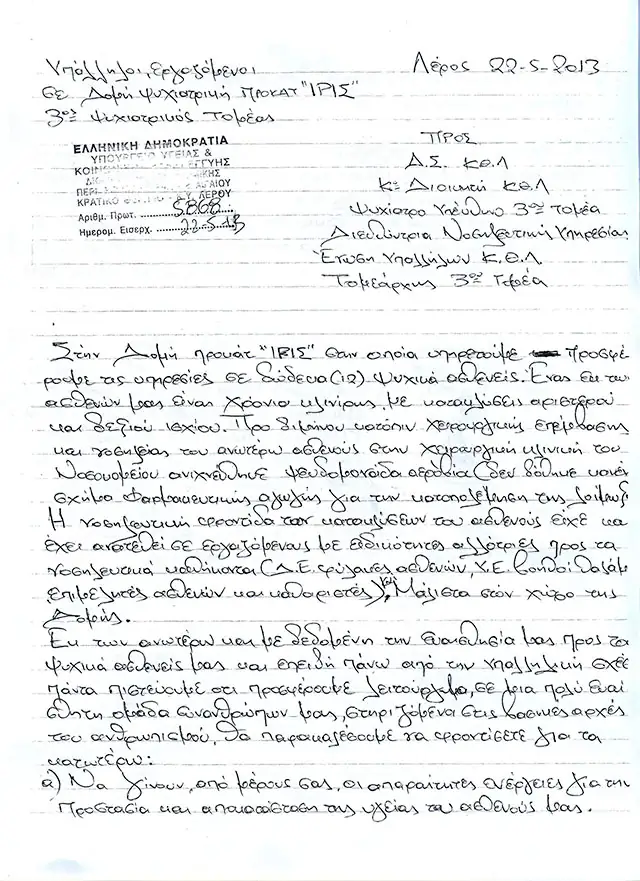 Υπάλληλοι, εργαζόμενοι
Λέρος 22-5-2013
σε Δομή ψυχιατρική ΠΡΟΚΑΤ "ΙΡΙΣ"
3ος Ψυχιατρικός Τομέας
ΕΛΛΗΝΙΚΗ ΔΗΜΟΚΡΑΤΙΑ
ΥΠΟΥΡΓΕΙΟ ΥΓΕΙΑΣ &
ΚΟΙΝΩΝΙΚΗΣ ΑΛΛΗΛΕΓΓΥΗΣ
ΑΙΓΑΙΟΥ
ΚΡΑΤΙΚΟ ΛΕΡΟΥ
Αριθμ. Πρωτ. 5868
Ημερομ. Εισερχ. 22.5.13
ΠΡΟΣ
Δ.Σ. Κ.Θ.Λ
Κα Διοικητή Κ.Θ.Λ
Ψυχίατρο Υπεύθυνο 3ου Τομέα
Διευθύντρια Νοσηλευτικής Υπηρεσίας
Ένωση Υπαλλήλων Κ.Θ.Λ
Τομεάρχης 3ου Τομέα
Στην Δομή προκάτ "ΙΡΙΣ" στην οποία υπηρετούμε προσφέ
ρουμε τις υπηρεσίες σε δώδεκα (12) ψυχικά ασθενείς. Ένας εκ των
ασθενών μας είναι χρόνια κλινήρης, με κατακλύσεις αριστερού
και δεξιού ισχίου. Προ διμήνου κατόπιν χειρουργικής επέμβασης
και νοσηλείας του ανωτέρω ασθενούς στην χειρουργική κλινική του
Νοσοκομείου ανιχνεύθηκε ψευδομονάδα αεροβία (δεν δόθηκε κανέν
σχήμα φαρμακευτικής αγωγής για την καταπολέμηση της λοίμωξ
Η νοσηλευτική φροντίδα των κατακλίσεων του ασθενούς είχε και
έχει ανατεθεί σε εργαζόμενους με ειδικότητες αλλότριες προς τα
νοσηλευτικά καθήκοντα (Δ.Ε. φύλακες ασθενών, Υ.Ε. βοηθοί θαλάμ
επιμελητές ασθενών και καθαριστές), Μάλιστα στον χώρο της
Δομής.
Εκ των ανωτέρω και με δεδομένη την ευαισθησία μας προς το
ψυχικά ασθενείς μας και επειδή πάνω από την υπαλληλική σχέσ
πάντα πιστεύουμε ότι προσφέρουμε λειτούργημα, σε μια πολύ ευαί
σθητη ομάδα συνανθρώπων μας, στηριζόμενα στις βασικές αρχές
του ανθρωπισμού, θα παρακαλέσουμε να φροντίσετε για τα
κατωτέρω:
α) Να γίνουν, από μέρους σας, οι απαραίτητες ενέργειες για την
προστασία και αποκατάσταση της υγείας του ασθενούς μας.